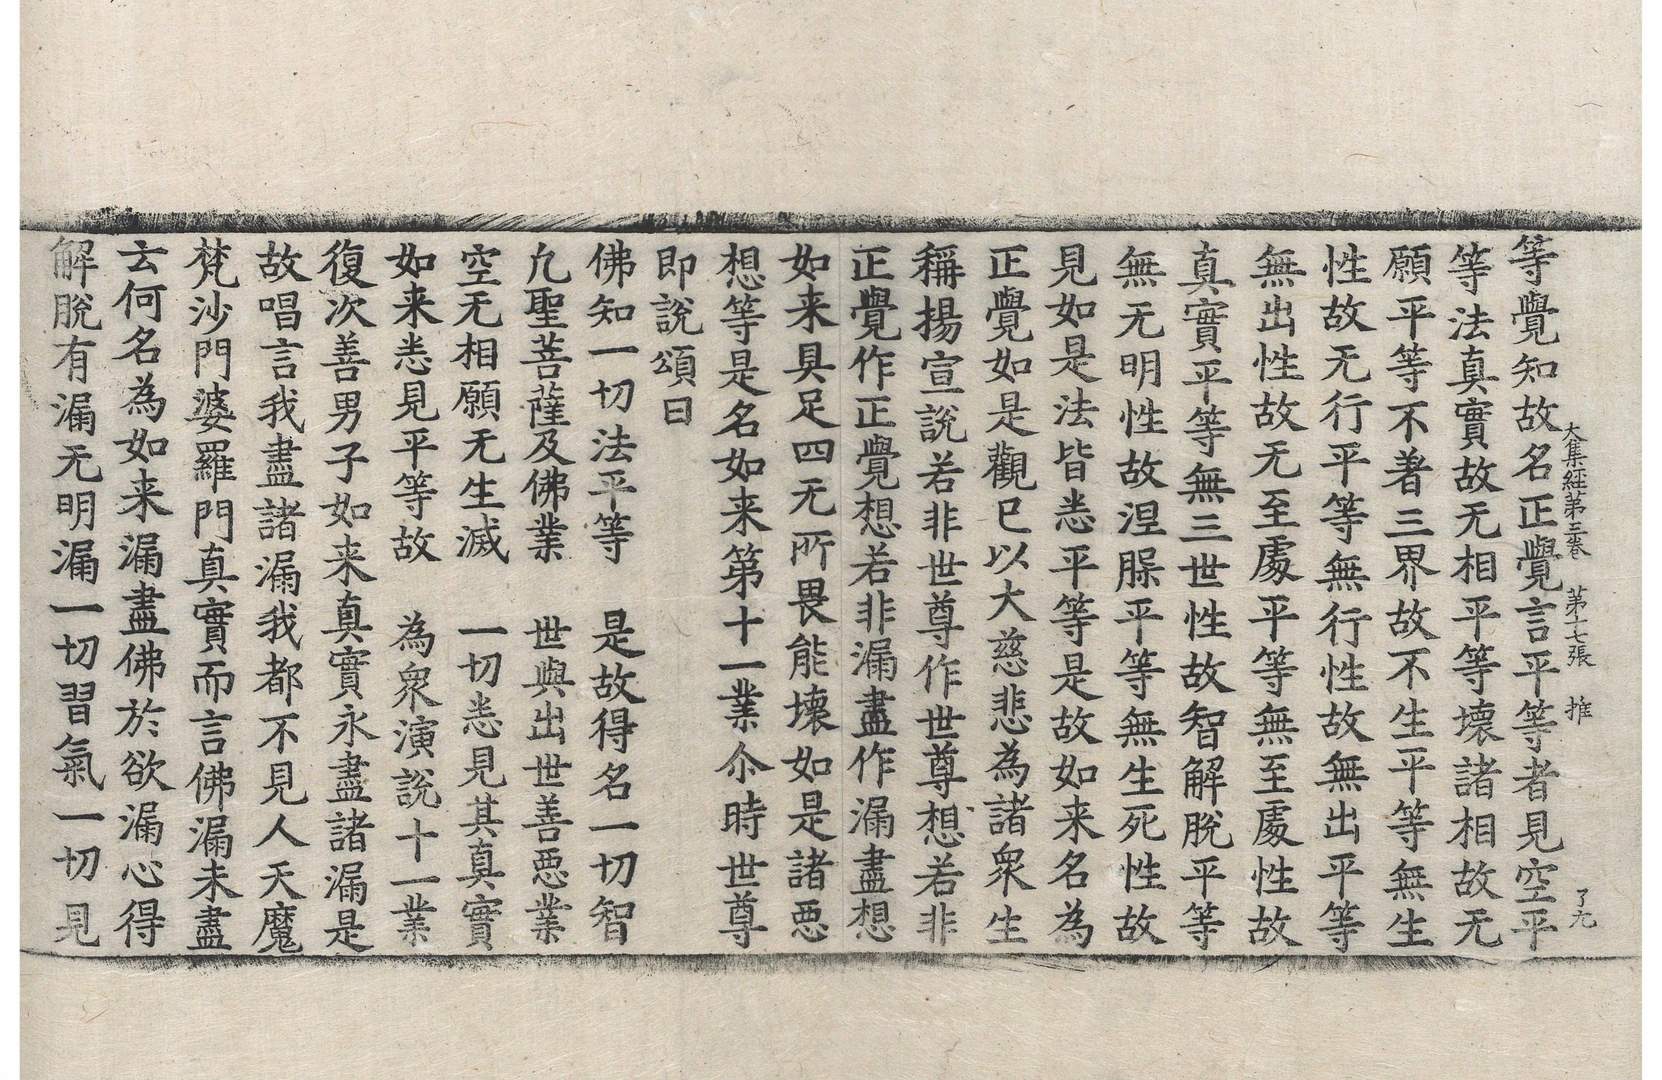 大集經第三卷　第十七張　推　了九
等覺知故名正覺言平等者見空平
等法真實故无相平等壞諸相故无
願平等不著三界故不生平等無生
性故无行平等無行性故無出平等
無出性故无至處平等無至處性故
真實平等無三世性故智解脫平等
無无明性故涅槃平等無生死性故
見如是法皆悉平等是故如来名為
正覺如是觀已以大慈悲為諸衆生
稱揚宣說若非世尊作世尊想若非
正覺作正覺想若非漏盡作漏盡想
如来具足四无所畏能壞如是諸惡
想等是名如来第十一業尒時世尊
即說頌曰
佛知一切法平等　是故得名一切智
凢聖菩薩及佛業　世與出世善惡業
空无相願无生滅　一切悉見其真實
如来悉見平等故　為衆演說十一業
復次善男子如来真實永盡諸漏是
故唱言我盡諸漏我都不見人天魔
梵沙門婆羅門真實而言佛漏未盡
云何名為如来漏盡佛於欲漏心得
解脫有漏无明漏一切習氣一切見